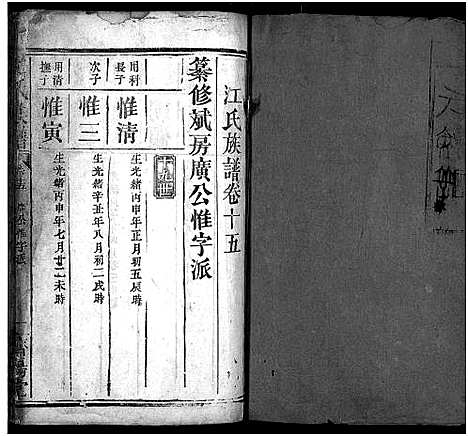 江氏族譜卷十五
纂修斌房廣公惟字派
十九世
用利長子
惟清
生光緒丙申年正月初五辰時
次子
惟三
生光緒辛丑年八月初二戌時
用清撫子
惟寅
生光緒丙申年七月廿二未時